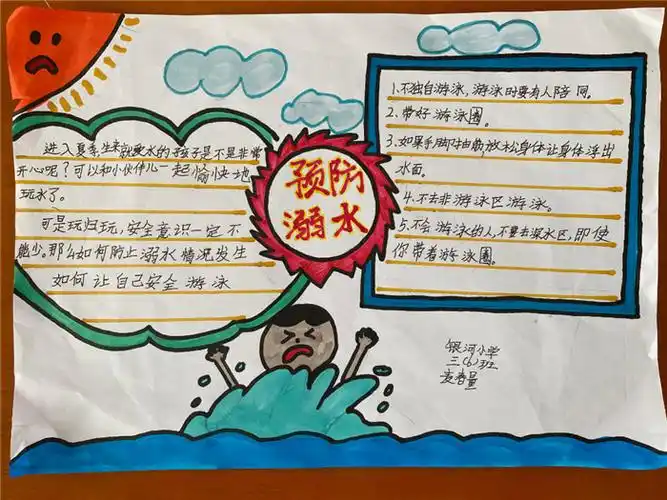 预防
溺水
进入夏季,生来就爱水的孩子是不是非常
开心呢?可以和小伙伴儿一起愉快地
玩水了。
可是玩归玩,安全意识一定不
能少。那么如何防止溺水情况发生
如何让自己安全游泳
1.不独自游泳,游泳时要有人陪同。
2.带好游泳圈。
3.如果手脚抽筋,放松身体让身体浮出
水面。
4.不去非游泳区游泳。
5.不会游泳的人,不要去深水区,即使
你带着游泳圈。
银河小学
三(6)班